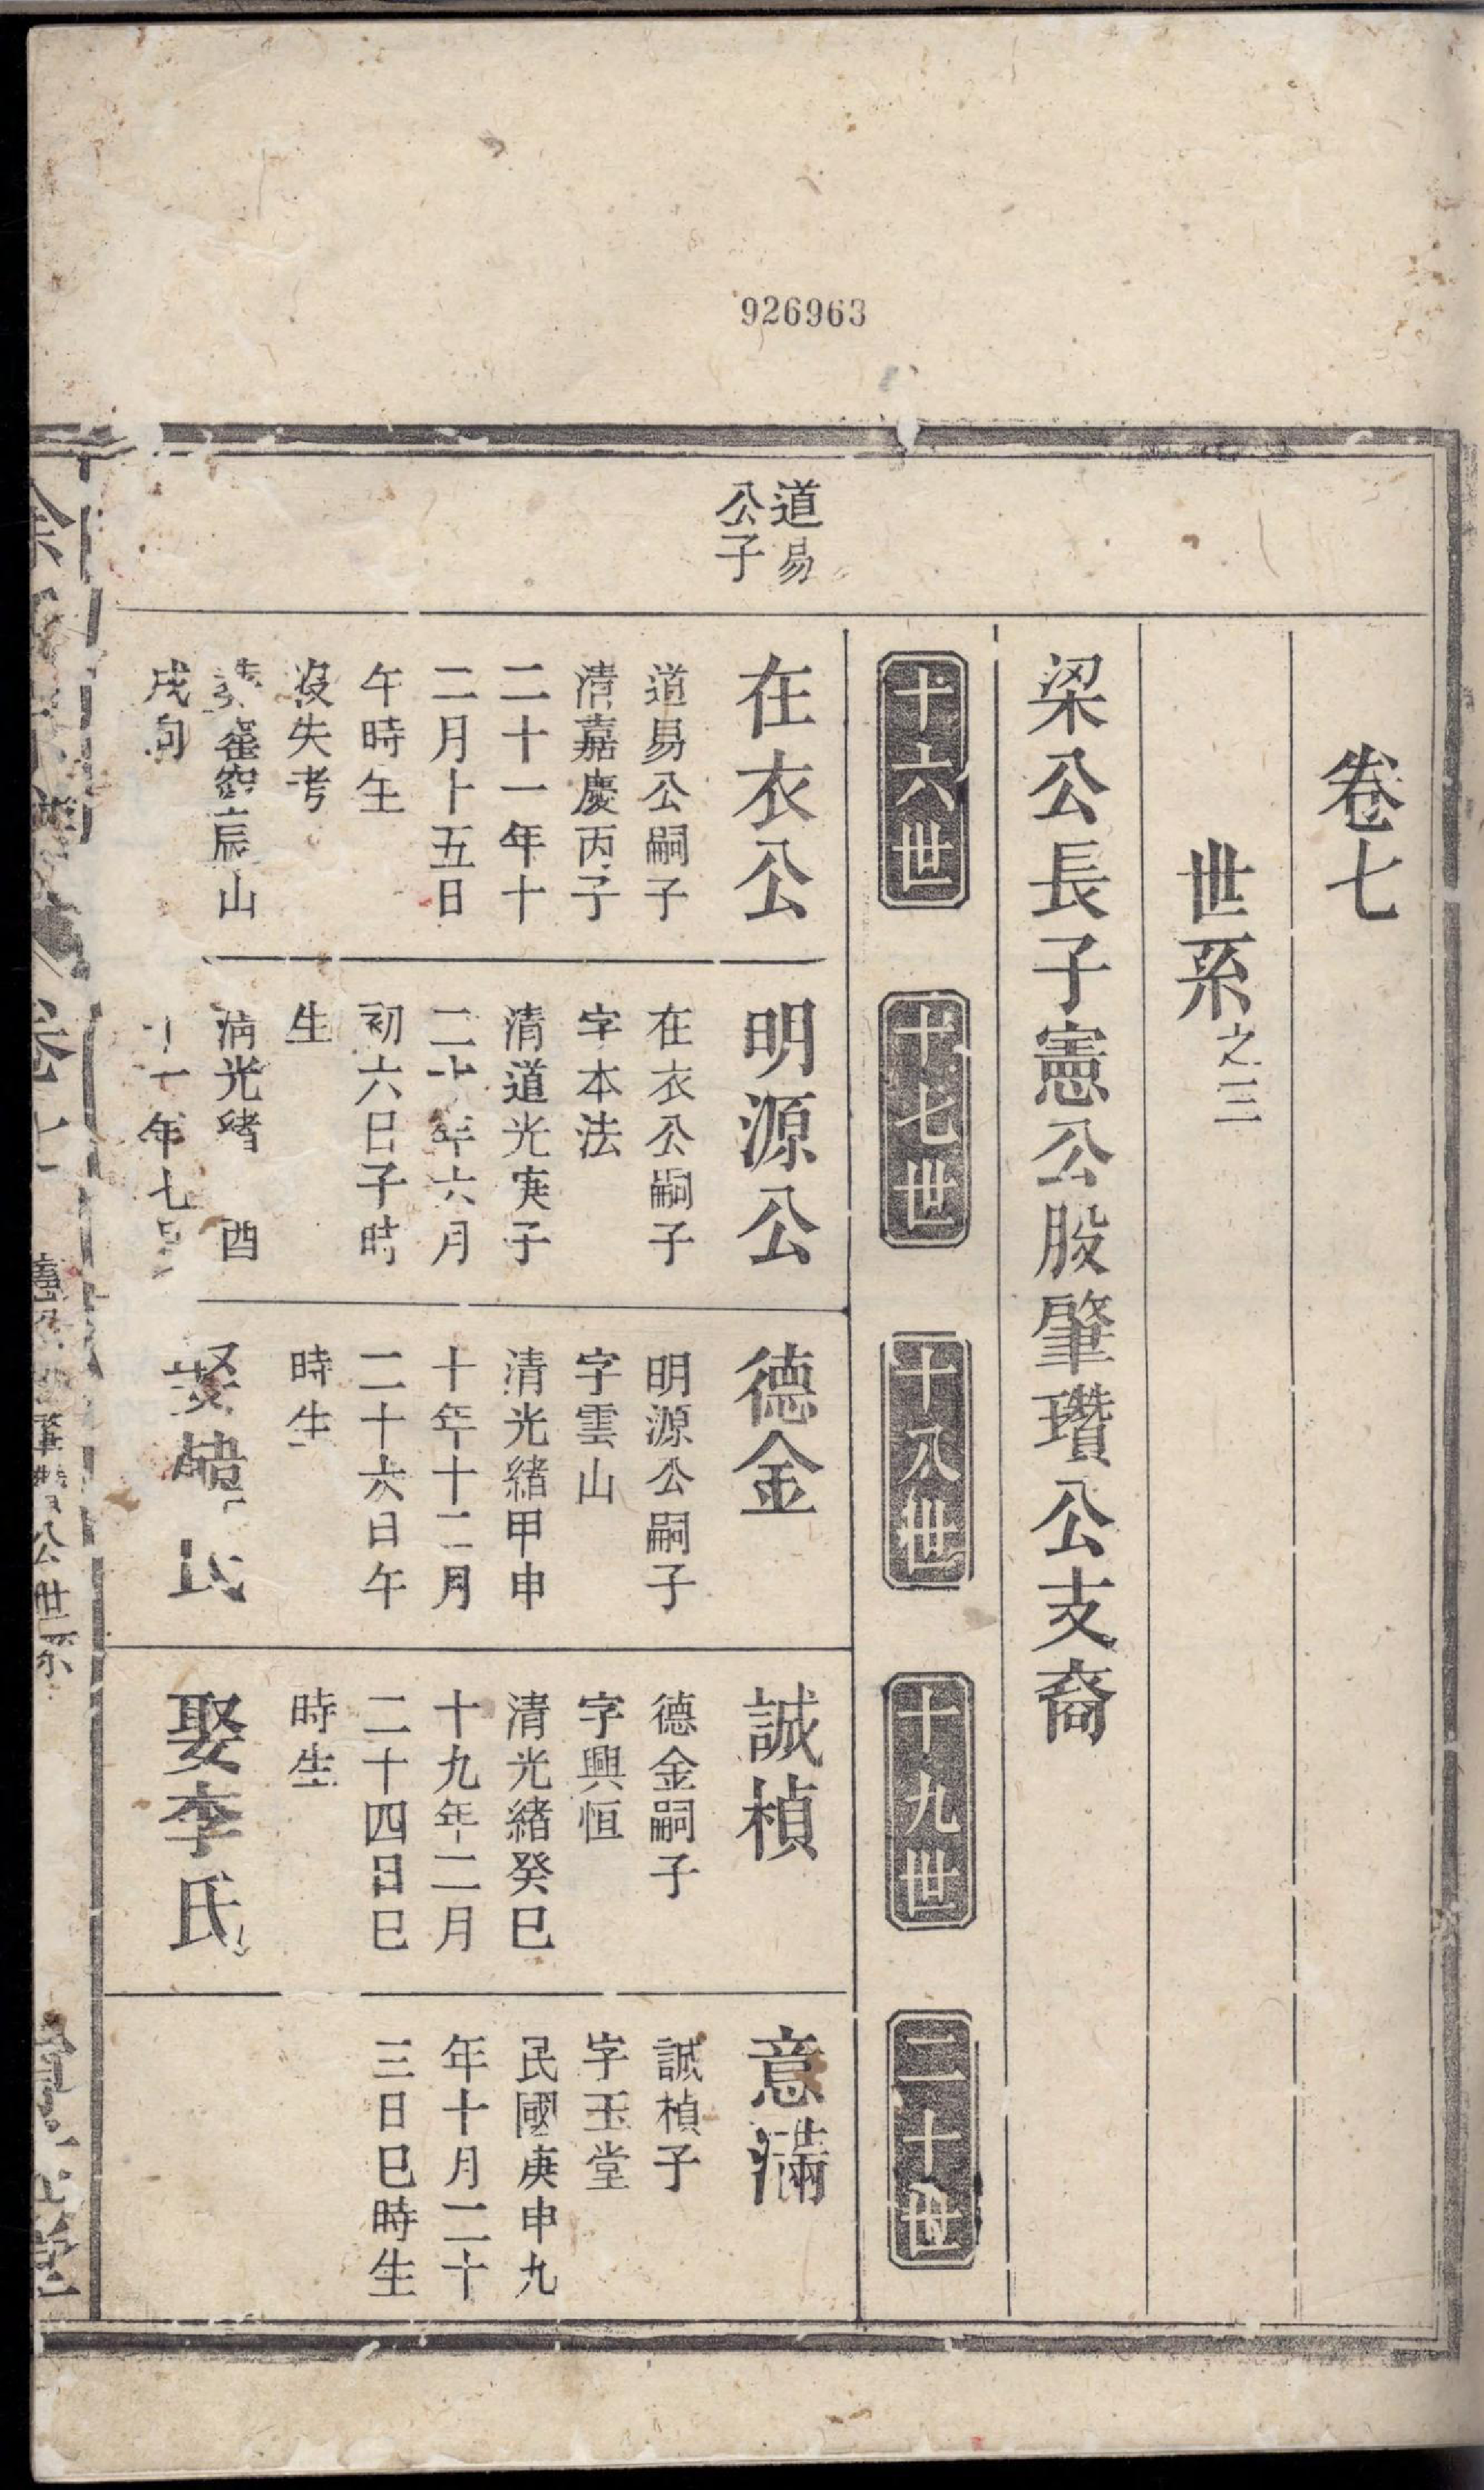 926963
卷七
世系之三
梁公長子憲公股肇瓚公支裔
十六世
十七世
十八世
十九世
二十世
道易
公子
在衣公
道易公嗣子
清嘉慶丙子
二十一年十
二月十五日
午時生
沒失考
辰山
戌向
明源公
在衣公嗣子
字本法
清道光庚子
二十年六月
初六日子時
生
清光緒 酉
十一年七
德金
明源公嗣子
字雲山
清光緒甲申
十年十二月
二十六日午
時生
氏
誠楨
德金嗣子
字興恒
清光緒癸巳
十九年二月
二十四日巳
時生
娶李氏
意滿
誠楨子
字玉堂
民國庚申九
年十月二十
三日巳時生
卷七
公世系
堂